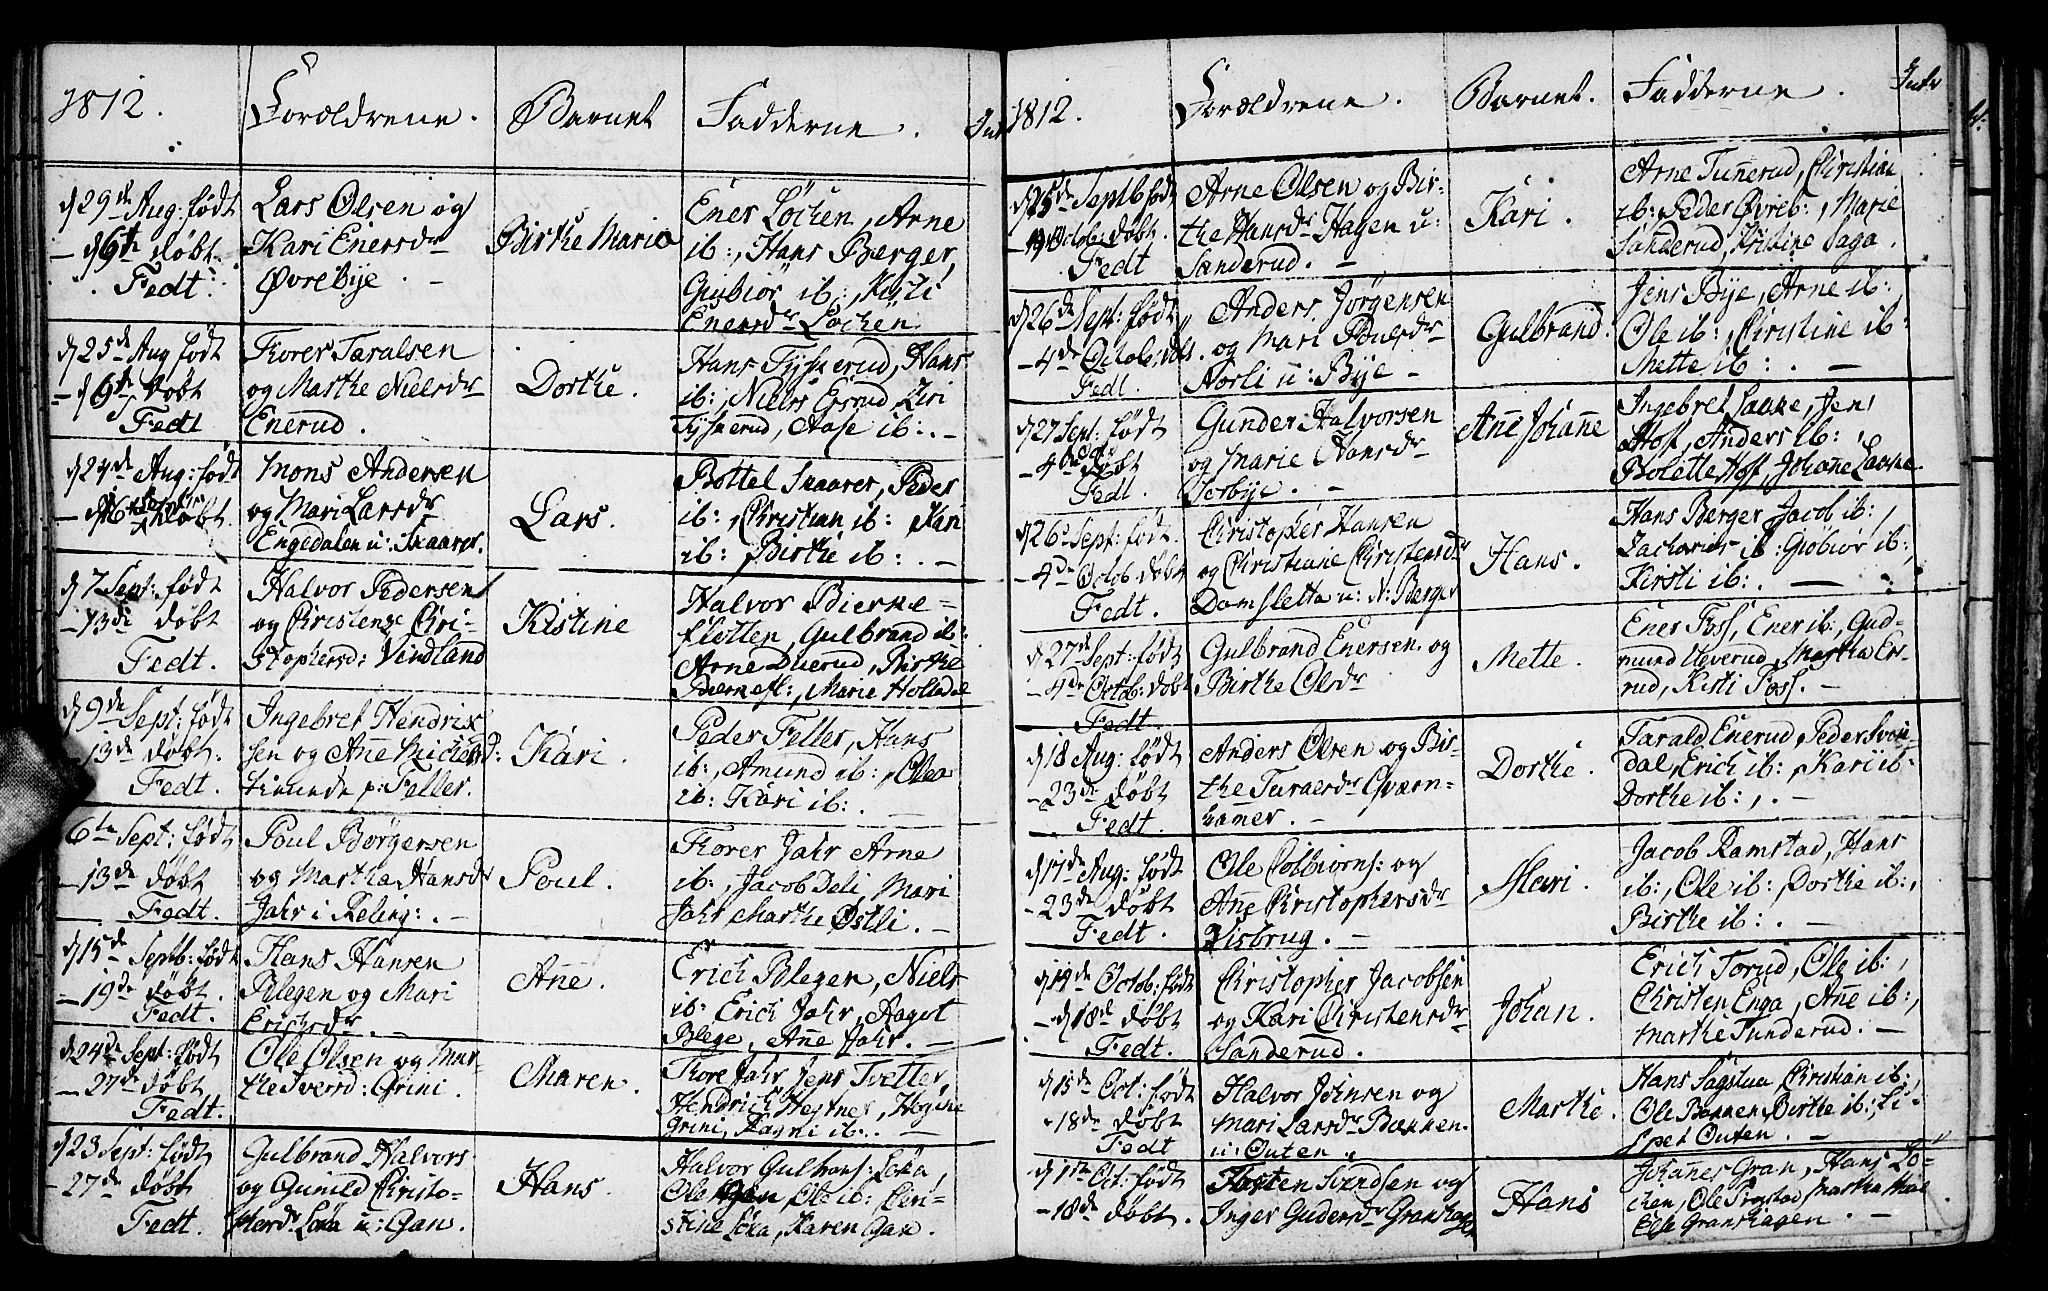 1812.
Foroldrene.
Barnet
Fadderne.
d 29de Aug: født
- d 6te døbt.
Fedt.
Lars Olsen og
Kari Enersdr
Øvrebye.
Birthe Maria
Ener Løchen, Arne
ib:, Hans Berger,
Gubiør ib:, Kirsti
Enersdr Løchen.
d 25de Aug født
- d 6te døbt
Fedt
Torer Taralsen
og Marthe Nielsdr
Enerud.
Dorthe.
Hans Fyskerud, Hans
ib:, Niels Esrud, Ziri
Fyskerud, Aase ib:. -
d 24de Aug: født
døbt.
Mons Andersen
og Mari Larsdr
Engedalen u: Skaarer.
Lars.
Bottel Skaarer, Peder
ib:, Christian ib: Kari
ib: Birthe ib:. -
d 7 Sept: født
- 13de døbt
Fedt.
Halvor Pedersen
og Christense Chri-
stophersd: Vindland
Kistine
Halvor Bierke-
flotten, Gulbrand ib:
Arne Duerud, Birthe
Bierkefl:, Marie Holledal
d 9de Sept: født
- 13de døbt.
Fedt.
Ingebret Hendrik
sen og Añe Michelsd:
hunde p: Feller.
Kari.
Peder Feller, Hans
ib:, Amund ib:, Olea
ib: Kari ib:. -
6te Sept: født
- 13de døbt
Fedt.
Poul Børgersen
og Martha Hansdr
Jahr i Reling:. -
Poul.
Torer Jahr Arne
ib:, Jacob Deli, Mari
Jahr Marthe Østli. -
d 15de Septb: født
- 19de døbt.
Fedt.
Hans Hansen
Blegen og Mari
Erichsdr. -
Añe.
Erich Blegen, Niels
ib: Erich Jahr, Aagot
Blege, Añe Jahr. -
d 24de Sept: født
- 27de døbt
Fedt.
Ole Olsen og Mar-
the Sversd: Grini.
Maren.
Tore Jahr Jens Tvetter,
Hendrich Hestnes,
Grini, Ragni ib:. -
d 23 Sept: født
- 27de døbt
Fedt.
Gulbrand Halvors
og Gunild Christo-
phersdr Løka u: Gan.
Hans.
Halvor Gulbrans: Løka,
Ole Gan Ole ib: Chri-
stine Løka, Karen Gan.
1812.
Foroldrene.
Barnet.
Fadderne.
Intr
d 25de Septb født
Octob: døbt.
Fedt
Arne Olsen og Bir-
the Hansdr Hagen u:
Sanderud. -
Kari.
Arne Tuñerud, Christian
ib: Peder Øvreb:, Marie
Sanderud, Kristine Saga.
d 26de Sept: født
- 4de Octob: døbt.
Fedt.
Anders Jørgensen
og Mari Pouersdr
Norli u: Bye -
Gulbrand.
Jens Bye, Arne ib:
Ole ib:, Christine ib:
Mette ib:. -
d 27 Sept: født
- 4de døbt
Fedt.
Gunder Halvorsen
og Marie Hansdr
Torbye. -
Añe Johañe
Ingebret Laake, Jens
Hof, Anders ib:
Bolette Hof, Johañe Laake.
d 26 Sept: født.
- 4de Octob døbt
Fedt.
Christopher Hansen
og Christiane Christensdr
Damsletta u: N: Berger
Hans.
Hans Berger Jacob ib:,
Zacharias ib: Gubiør ib:,
Kirsti ib:. -
d 27 Sept: født
- 4de Octob: døbt
Fedt.
Gulbrand Enersen og
Birthe Olsdr
Mette.
Ener Foss, Ener ib:, Gud-
mund Ueverud, Martha Es-
rud, Kisti Foss. -
d 18 Aug: født
- 23de døbt
Fedt.
Anders Olsen og Bir-
the Turaersdr Qværn-
hamer. -
Dorthe.
Tarald Enerud, Peder Svin
dal, Erich ib:, Kari ib:
Dorthe ib:,. -
d 17de Aug: født
- 23de døbt
Fedt.
Ole Colbiørns: og
Añe Christophersdr
Visbrug. -
Mari.
Jacob Ramstad, Hans
ib:, Ole ib:, Dorthe ib:,
Birthe ib:. -
d 14de Octob: født
- d 18de døbt
Fedt.
Christopher Jacobsen
og Kari Christensdr
Sanderud.
Johan.
Erich Torud, Ole ib:,
Christen Enga, Añe ib:,
Marthe Tunderud. -
d 15de Oct: født
- 18de døbt
Fedt
Halvor Johnsen og
Mari Larsdr Bakken.
u: Outen.
Marthe.
Hans Sagstua, Christian ib:
Ole Bakken Birthe ib:, Li-
spet Outen. -
d 11te Oct: født
- 18de døbt.
Torsten Svendsen og
Inger Gudersdr Granhagen
Hans
Johanes Gran, Hans Lø-
chen, Ole Prøstad, Martha
Else Granshagen. -